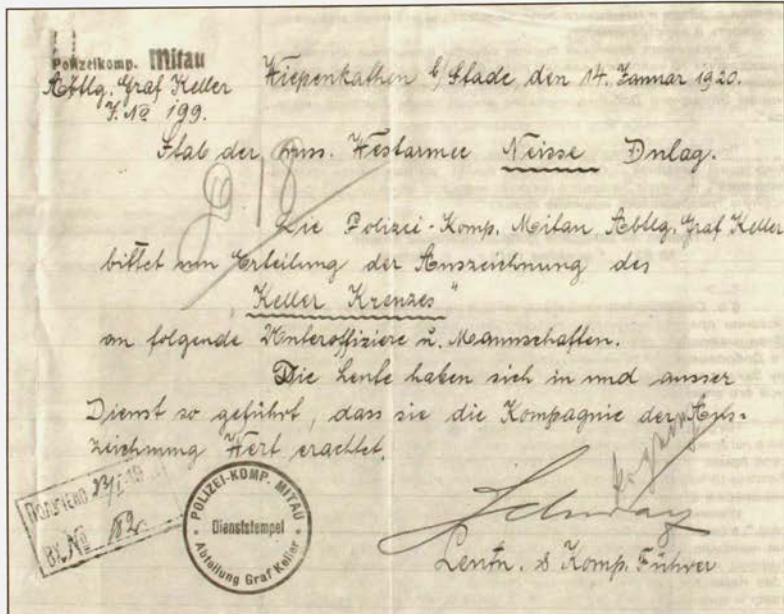 Polizeikomp. Mitau
Abtlg. Graf Keller
J. № 199.
Wiepenkathen b/Stade, den 14. Januar 1920.
Stab der russ. Westarmee Neisse Dulag.
Die Polizei-Komp. Mitau, Abtlg. Graf Keller
bittet um Erteilung der Auszeichnung des
"Keller Kreuzes"
an folgende Unteroffiziere u. Mannschaften.
Die Leute haben sich in und ausser
Dienst so geführt, dass sie die Kompagnie der Aus-
zeichnung Wert erachtet.
ПОЛУЧЕНО 23/I-19
ВХ. №
POLIZEI-KOMP. MITAU
Dienststempel
Abteilung Graf Keller
Leutn. & Komp. Führer